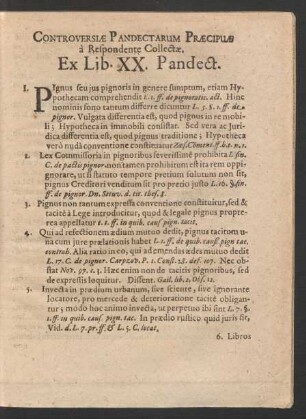 CONTROVERSIÆ PANDECTARUM PRÆCIPUÆ
à Respondente Collectæ.
Ex Lib. XX. Pandect.
1. PIgnus seu jus pignoris in genere sumptum, etiam Hy-
pothecam comprehendit l. 1. ff. de pigneratit. act. Hinc
nominis sono tantum differre dicuntur L. 5. §. 1. ff. de
pigner. Vulgata differentia est, quod pignus in re mobi-
li; Hypotheca in immobili consistat. Sed vera ac Ju-
ridica differentia est, quod pignus traditione; Hypotheca
verò nudâ conventione constituatur
2. Lex Commissoria in pignoribus severissimè prohibita l. fin.
C. de pactis pignor. non tantum prohibitum est ita rem oppi-
gnorare, ut si statuto tempore pretium solutum non sit,
pignus Creditori venditum sit pro precio justo L. 16. §. fin.
ff. de pignor. Dn. Struv. d. tit. thes. 8.
3. Pignus non tantum expressa conventione constituitur, sed &
tacitè à Lege introducitur, quod & legale pignus propte-
rea appellatur t. t. ff. in quib. caus. pign. tacit.
4. Qui ad refectionem ædium mutuo dedit, pignus tacitum u-
nà cum jure prælationis habet L. 1. ff. de quib. caus. pign tac.
contrah. Alia ratio in eo, qui ad emendas ædes mutuo dedit
L. 17. C. de pignor. Carpzob. P. 1. Const. 23. def. 107. Nec ob-
stat Nov. 97. c. 3. Hæc enim non de tacitis pignoribus, sed
de expressis loquitur. Dissent. Gail. lib. 2. Obs. 12.
5. Invecta in prædium urbanum, sive sciente, sive ignorante
locatore, pro mercede & deterioratione tacitè obligan-
tur; modo hoc animo invecta, ut perpetuo ibi sint L. 7. §.
1. ff in quib. caus. pign. tac. In prædio rustico quid juris sit,
Vid. d. L. 7. pr. ff. & L. 5. C. locat.
6. Libros